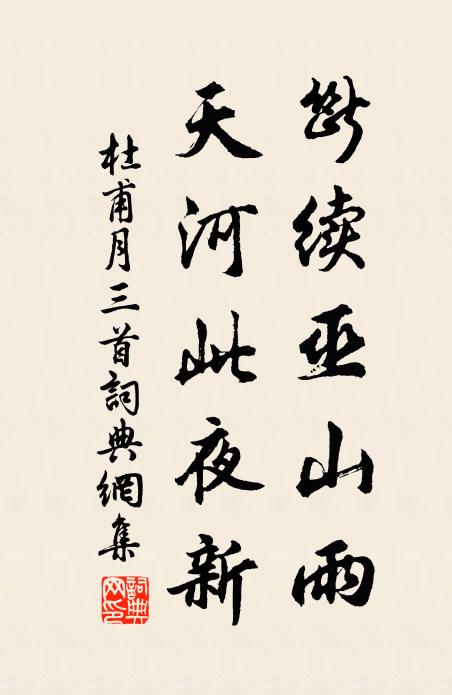 斷續巫山雨
天河此夜新
杜甫月三首詞典網集
詞典网印